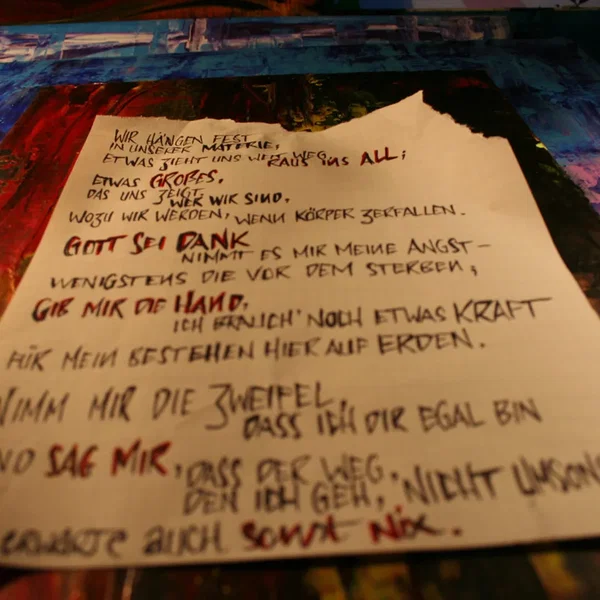 WIR HÄNGEN FEST
IN UNSERER MATERIE,
ETWAS ZIEHT UNS WEIT WEG,
RAUS INS ALL;
ETWAS GROßES,
DAS UNS ZEIGT,
WER WIR SIND,
WOZU WIR WERDEN, WENN KÖRPER ZERFALLEN.
GOTT SEI DANK
NIMMT ES MIR MEINE ANGST –
WENIGSTENS DIE VOR DEM STERBEN;
GIB MIR DIE HAND,
ICH BRAUCH' NOCH ETWAS KRAFT
FÜR MEIN BESTEHEN HIER AUF ERDEN.
NIMM MIR DIE ZWEIFEL,
DASS ICH DIR EGAL BIN
ND SAG MIR,
DASS DER WEG,
DEN ICH GEH, NICHT UMSONS
ERWARTE AUCH SONST NIX.